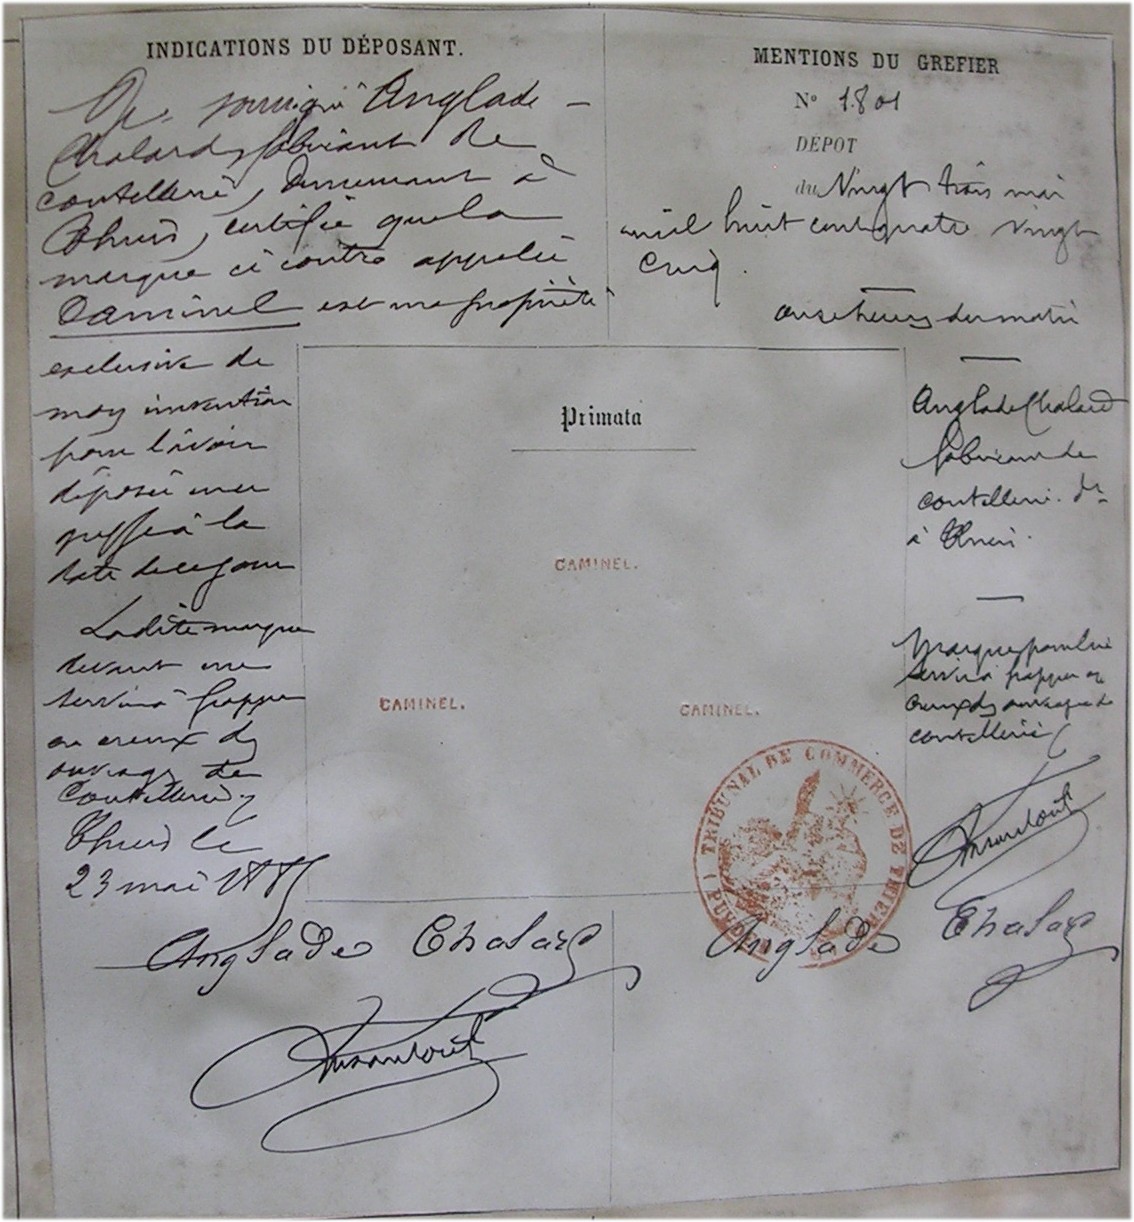 INDICATIONS DU DÉPOSANT.
Je, soussigné Anglade-
Chalard, fabricant de
coutellerie, demeurant à
Thiers, certifie que la
marque ci contre appelée
Caminel est ma propriété
exclusive de
mon invention
pour l'avoir
déposée au
greffe à la
date de ce jour
La dite marque
devant me
servir à frapper
en creux des
ouvrages de
Coutellerie
Thiers le
23 mai 1885
Anglade Chalard
MENTIONS DU GREFIER
N° 1801
DÉPOT
du Vingt trois mai
mil huit cent quatre vingt
cinq.
onze heures du matin
Anglade Chalard
fabricant de
coutellerie. dt
à Thiers.
Marque pour lui
servir à frapper en
creux des ouvrages de
coutellerie
Anglade Chalard
Primata
CAMINEL.
CAMINEL.
CAMINEL.
TRIBUNAL DE COMMERCE DE THIERS (PUY